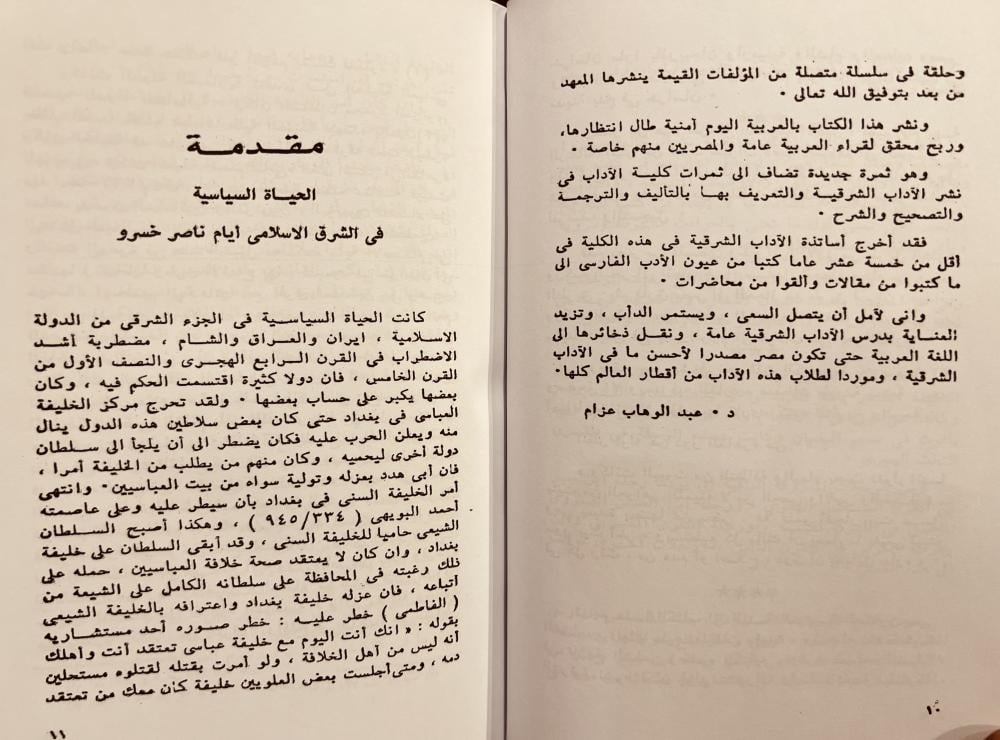 وحلقة فى سلسلة متصلة من المؤلفات القيمة ينشرها المعهد
من بعد بتوفيق الله تعالى ٠
ونشر هذا الكتاب بالعربية اليوم أمنية طال انتظارها،
وربح محقق لقراء العربية عامة والمصريين منهم خاصة ٠
وهو ثمرة جديدة تضاف الى ثمرات كلية الآداب فى
نشر الآداب الشرقية والتعريف بها بالتأليف والترجمة
والتصحيح والشرح ٠
فقد أخرج أساتذة الآداب الشرقية فى هذه الكلية فى
أقل من خمسة عشر عاما كتبا من عيون الأدب الفارسى الى
ما كتبوا من مقالات وألقوا من محاضرات ٠
وانى لآمل أن يتصل السعى ، ويستمر الدأب ، وتزيد
العناية بدرس الآداب الشرقية عامة ، ونقل ذخائرها الى
اللغة العربية حتى تكون مصر مصدرا لأحسن ما فى الآداب
الشرقية ، وموردا لطلاب هذه الآداب من أقطار العالم كلها٠
د ٠ عبد الوهاب عزام
١٠
مقدمة
الحياة السياسية
فى الشرق الاسلامى أيام ناصر خسرو
كانت الحياة السياسية فى الجزء الشرقى من الدولة
الاسلامية ، ايران والعراق والشام ، مضطربة أشد
الاضطراب فى القرن الرابع الهجرى والنصف الأول من
القرن الخامس ، فان دولا كثيرة اقتسمت الحكم فيه ، وكان
بعضها يكبر على حساب بعضها ٠ ولقد تحرج مركز الخليفة
العباسى فى بغداد حتى كان بعض سلاطين هذه الدول ينال
منه ويعلن الحرب عليه فكان يضطر الى أن يلجأ الى سلطان
دولة أخرى ليحميه ، وكان منهم من يطلب من الخليفة أمرا ،
فان أبى هدد بعزله وتولية سواه من بيت العباسيين٠ وانتهى
أمر الخليفة السنى فى بغداد بأن سيطر عليه وعلى عاصمته
أحمد البويهى ( ٩٤٥/٣٣٤ ) ، وهكذا أصبح السلطان
الشيعى حاميا للخليفة السنى ، وقد أبقى السلطان على خليفة
بغداد ، وان كان لا يعتقد صحة خلافة العباسيين ، حمله على
ذلك رغبته فى المحافظة على سلطانه الكامل على الشيعة من
أتباعه ، فان عزله خليفة بغداد واعترافه بالخليفة الشيعى
( الفاطمى ) خطر عليه : خطر صوره أحد مستشاريه
بقوله : « انك أنت اليوم مع خليفة عباسى تعتقد أنت وأهلك
أنه ليس من أهل الخلافة ، ولو أمرت بقتله لقتلوه مستحلين
دمه ، ومتى أجلست بعض العلويين خليفة كان معك من تعتقد
١١